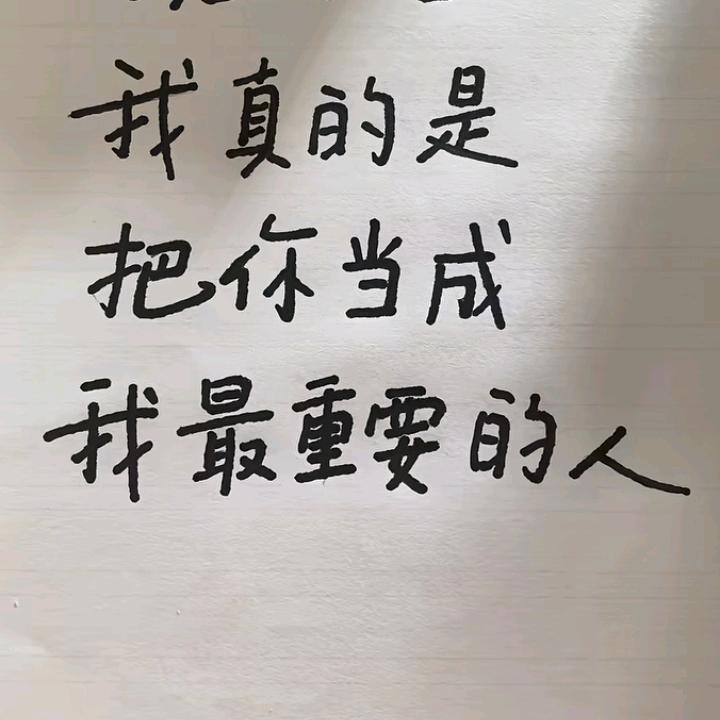 我真的是
把你当成
我最重要的人